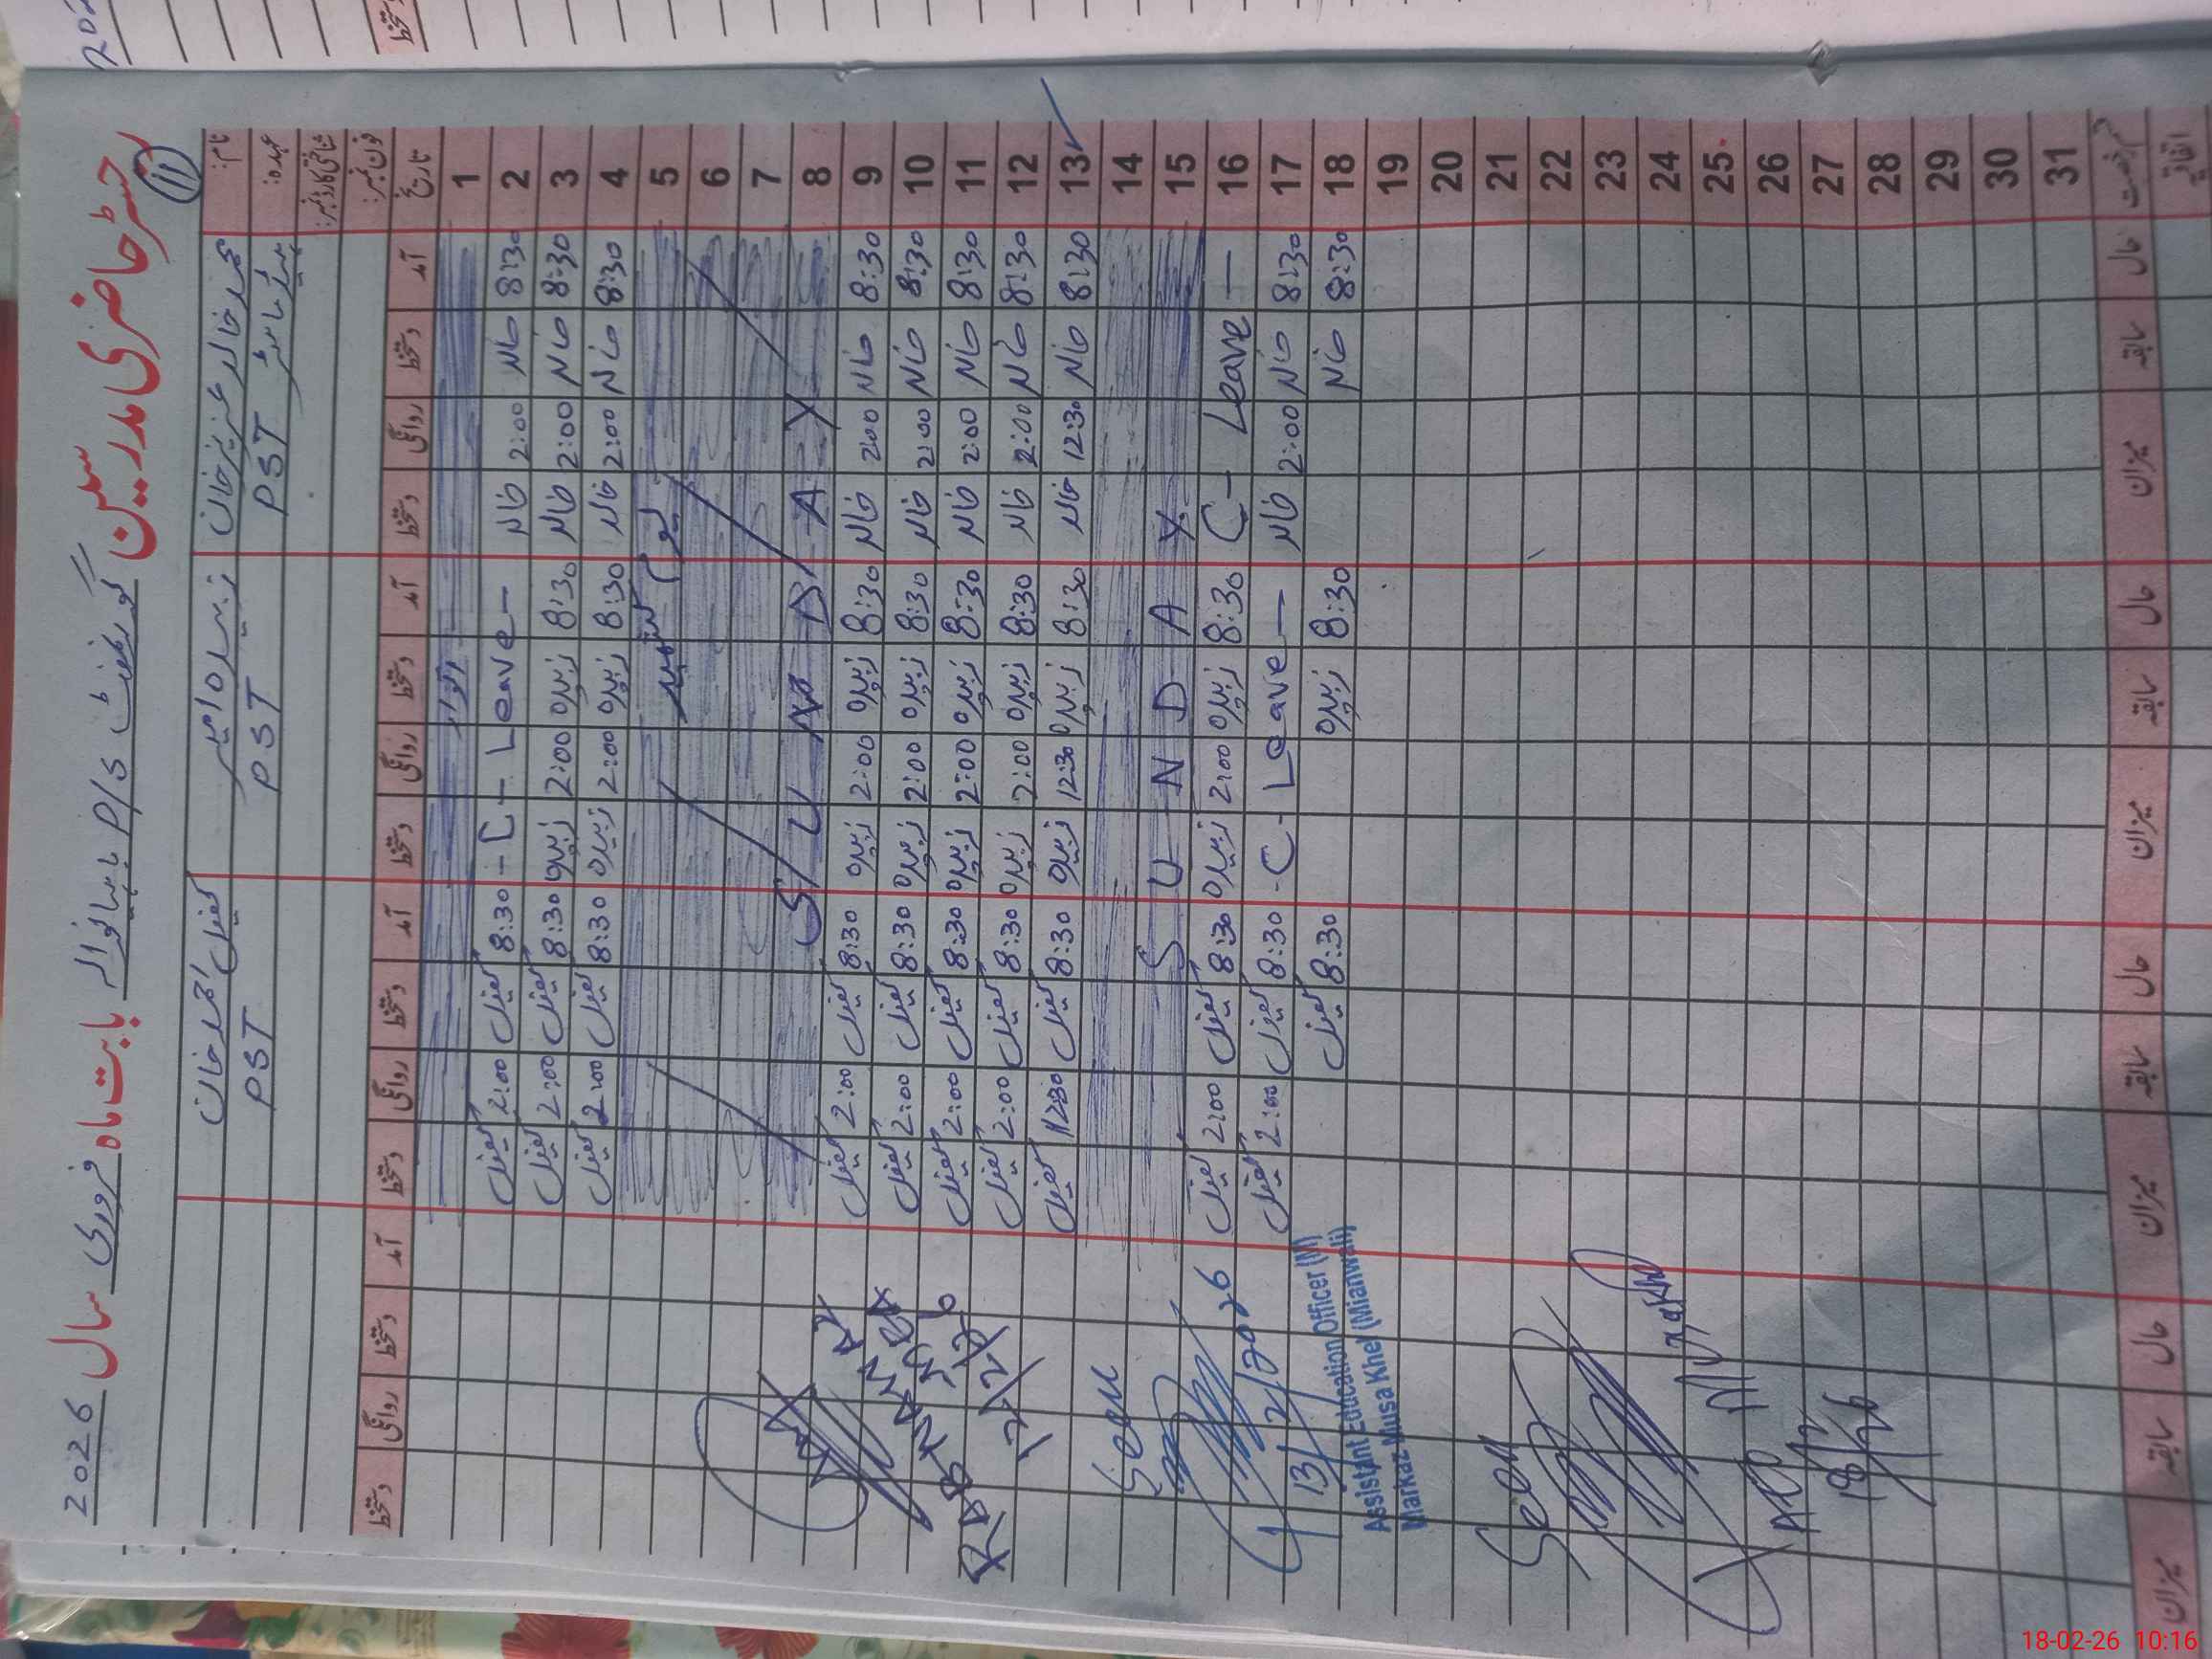 رجسٹر حاضری مدرسین گورنمنٹ P/S بابت ماہ فروری سال 2026
11
نام: محمد خالد عزیز خان زبیدہ کفیل احمد خان
عہدہ: PST ہیڈ ماسٹر PST PST
شناختی کارڈ نمبر:
فون نمبر:
تاریخ آمد دستخط روانگی دستخط آمد دستخط روانگی دستخط آمد دستخط روانگی دستخط آمد دستخط روانگی دستخط
1 اتوار
2 8:30 خالد 2:00 خالد - C - Leave - 8:30 کفیل 2:00 کفیل
3 8:30 خالد 2:00 خالد 8:30 زبیدہ 2:00 زبیدہ 8:30 کفیل 2:00 کفیل
4 8:30 خالد 2:00 خالد 8:30 زبیدہ 2:00 زبیدہ 8:30 کفیل 2:00 کفیل
5 یوم کشمیر
6
7
8 S U N D A Y
9 8:30 خالد 2:00 خالد 8:30 زبیدہ 2:00 زبیدہ 8:30 کفیل 2:00 کفیل
10 8:30 خالد 2:00 خالد 8:30 زبیدہ 2:00 زبیدہ 8:30 کفیل 2:00 کفیل
11 8:30 خالد 2:00 خالد 8:30 زبیدہ 2:00 زبیدہ 8:30 کفیل 2:00 کفیل
12 8:30 خالد 2:00 خالد 8:30 زبیدہ 2:00 زبیدہ 8:30 کفیل 2:00 کفیل
13 8:30 خالد 12:30 خالد 8:30 زبیدہ 12:30 زبیدہ 8:30 کفیل 12:30 کفیل
14
15 S U N D A Y
16 C - Leave — 8:30 زبیدہ 2:00 زبیدہ 8:30 کفیل 2:00 کفیل
17 8:30 خالد 2:00 خالد - C - Leave — 8:30 کفیل 2:00 کفیل
18 8:30 خالد 8:30 زبیدہ 8:30 کفیل
19
20
21
22
23
24
25
26
27
28
29
30
31
12/2/26
Seen
13/2/2026
Assistant Education Officer (M)
Markaz Musa Khel (Mianwali)
Seen
AEO
18/2/26
رخصت حال سابقہ میزان حال سابقہ میزان حال سابقہ میزان حال سابقہ میزان
اتفاقیہ
18-02-26 10:16